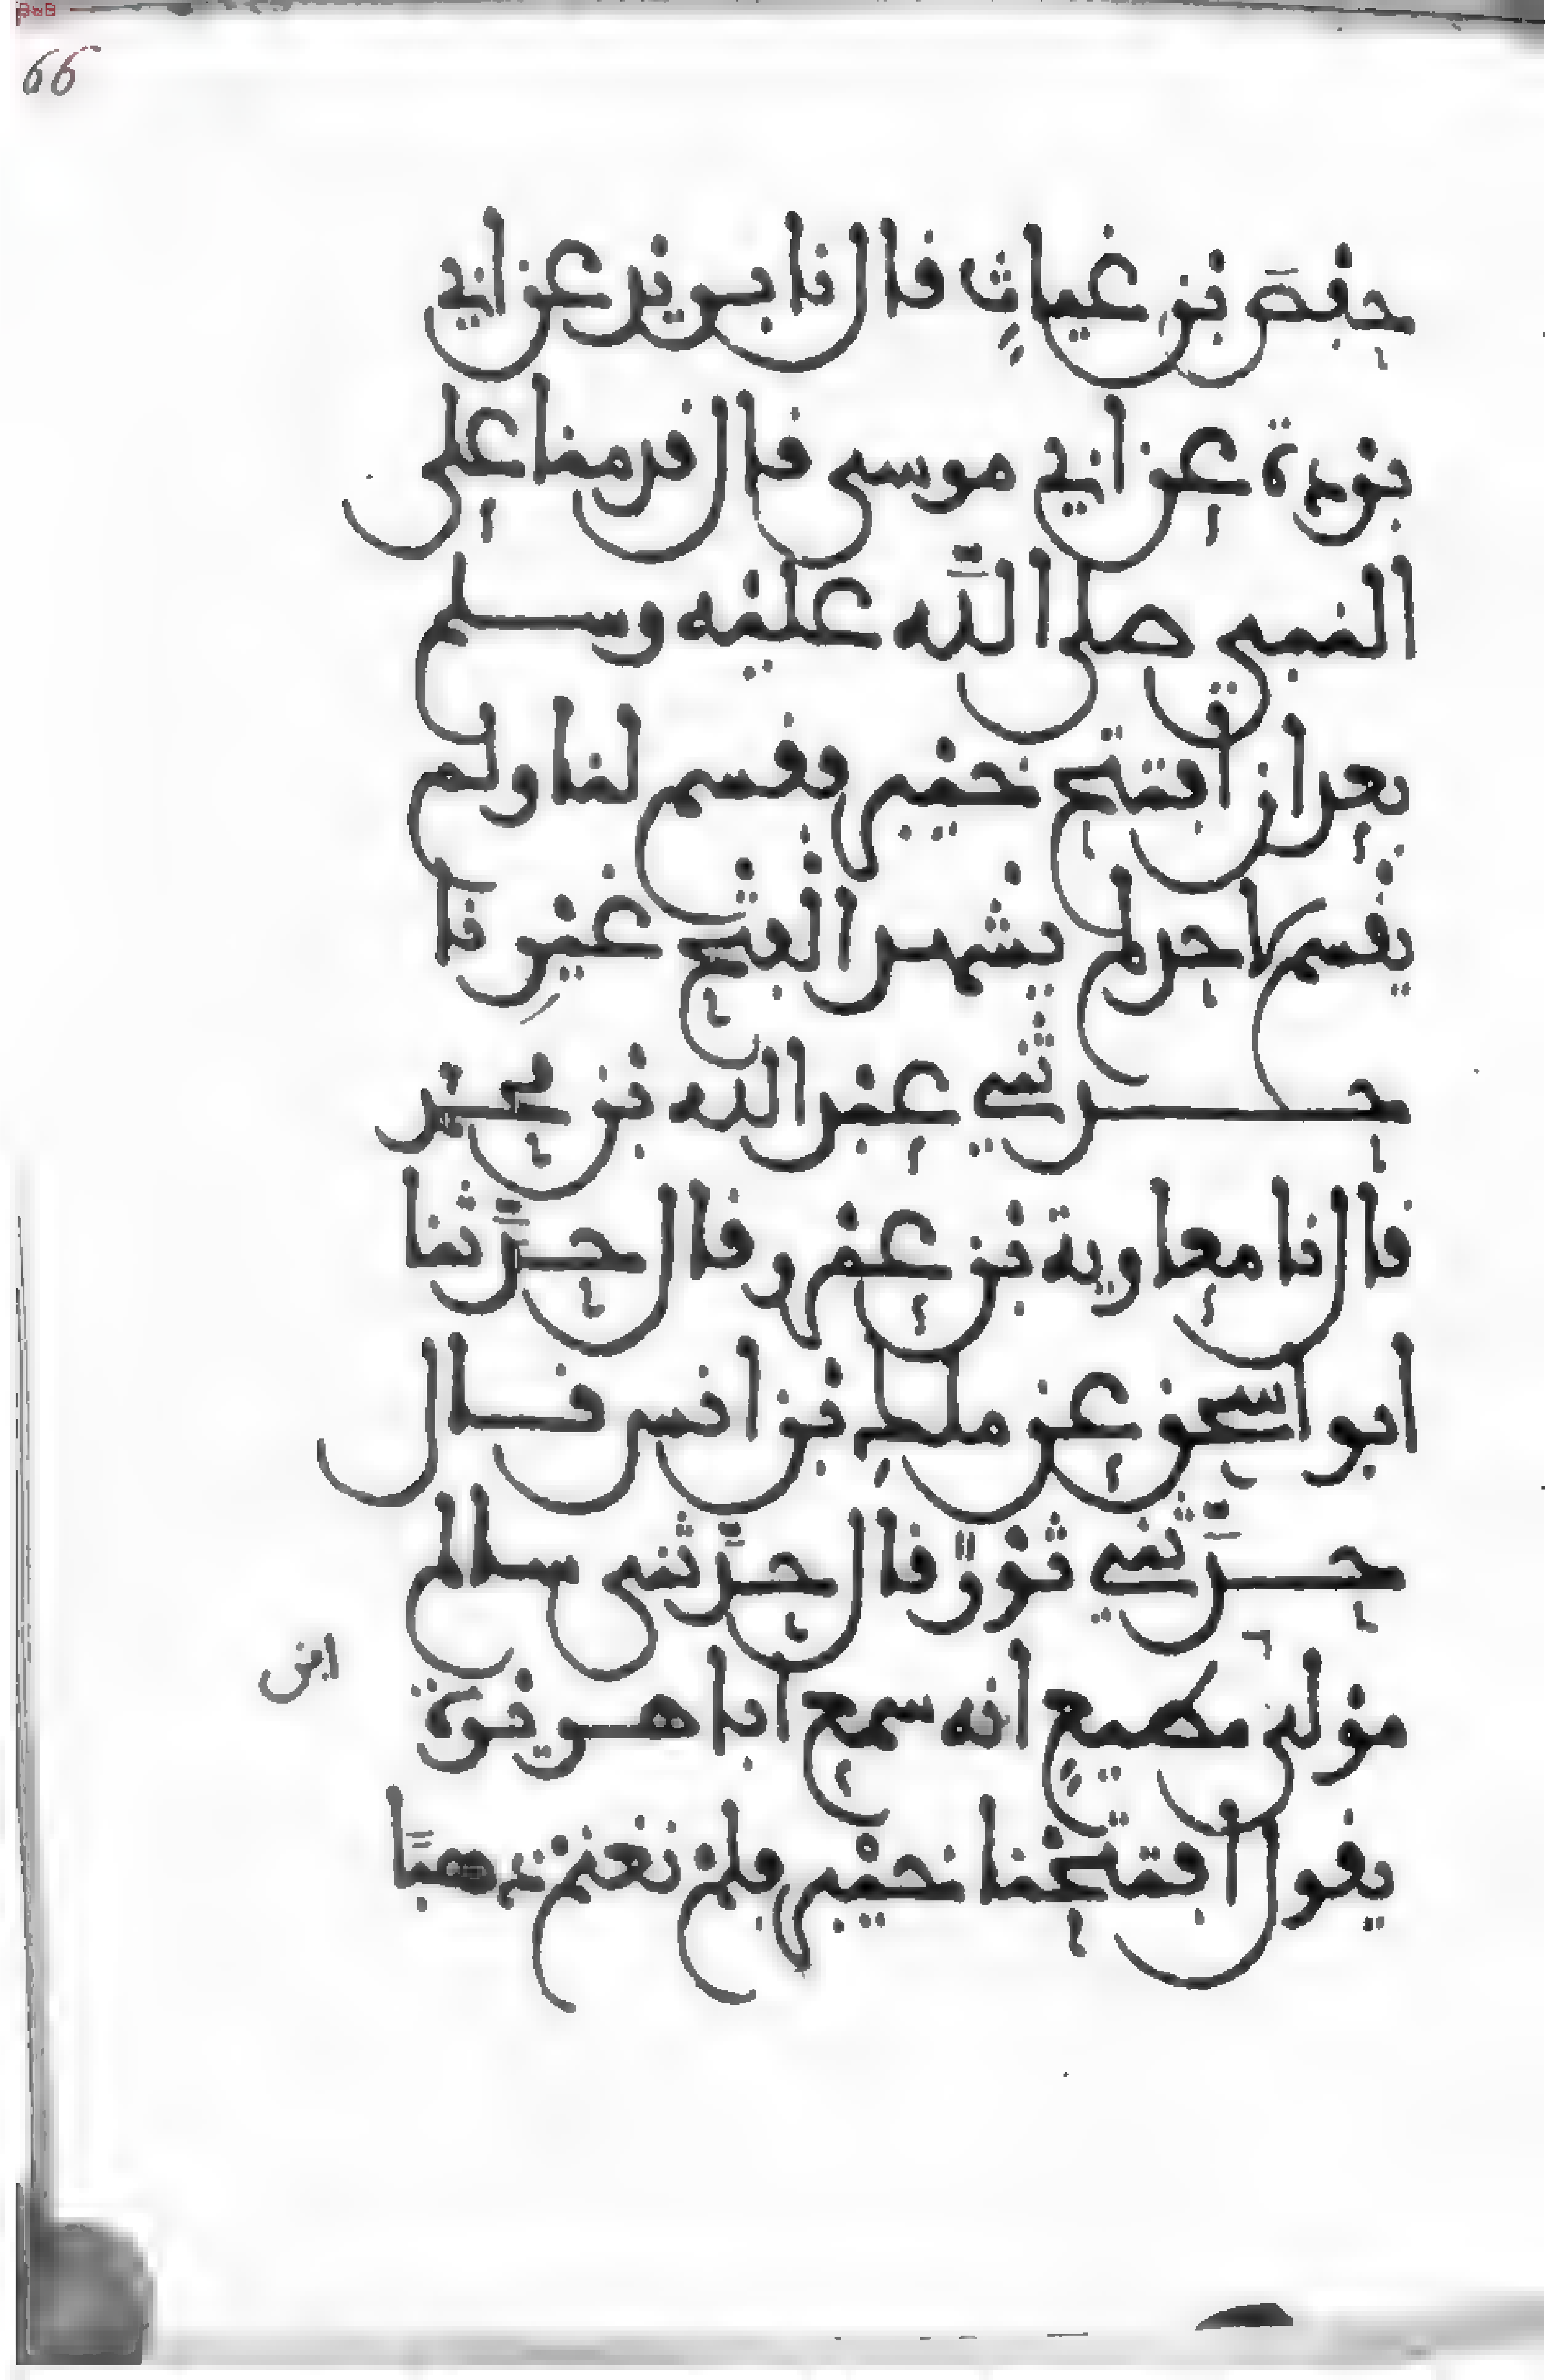 66
حفص بن غياثٍ قال نا بريد عن ابي
بردة عن ابي موسى قال قدمنا على
النبي صلى اللّه عليه وسلم
بعد ان افتتح خيبر فقسم لنا ولم
يقسم لاحد لم يشهد الفتح غيرنا
حدثني عبد الله بن محمد
قال نا معاوية بن عمرو قال حدَّثنا
ابو اسحق عن ملك بن انس قال
حدَّثني ثورٌ قال حدَّثني سالم
مولى مطيعٍ انه سمع ابا هريرة
ابن
يقول افتتحنا خيبر فلم نغنم ذهبًا